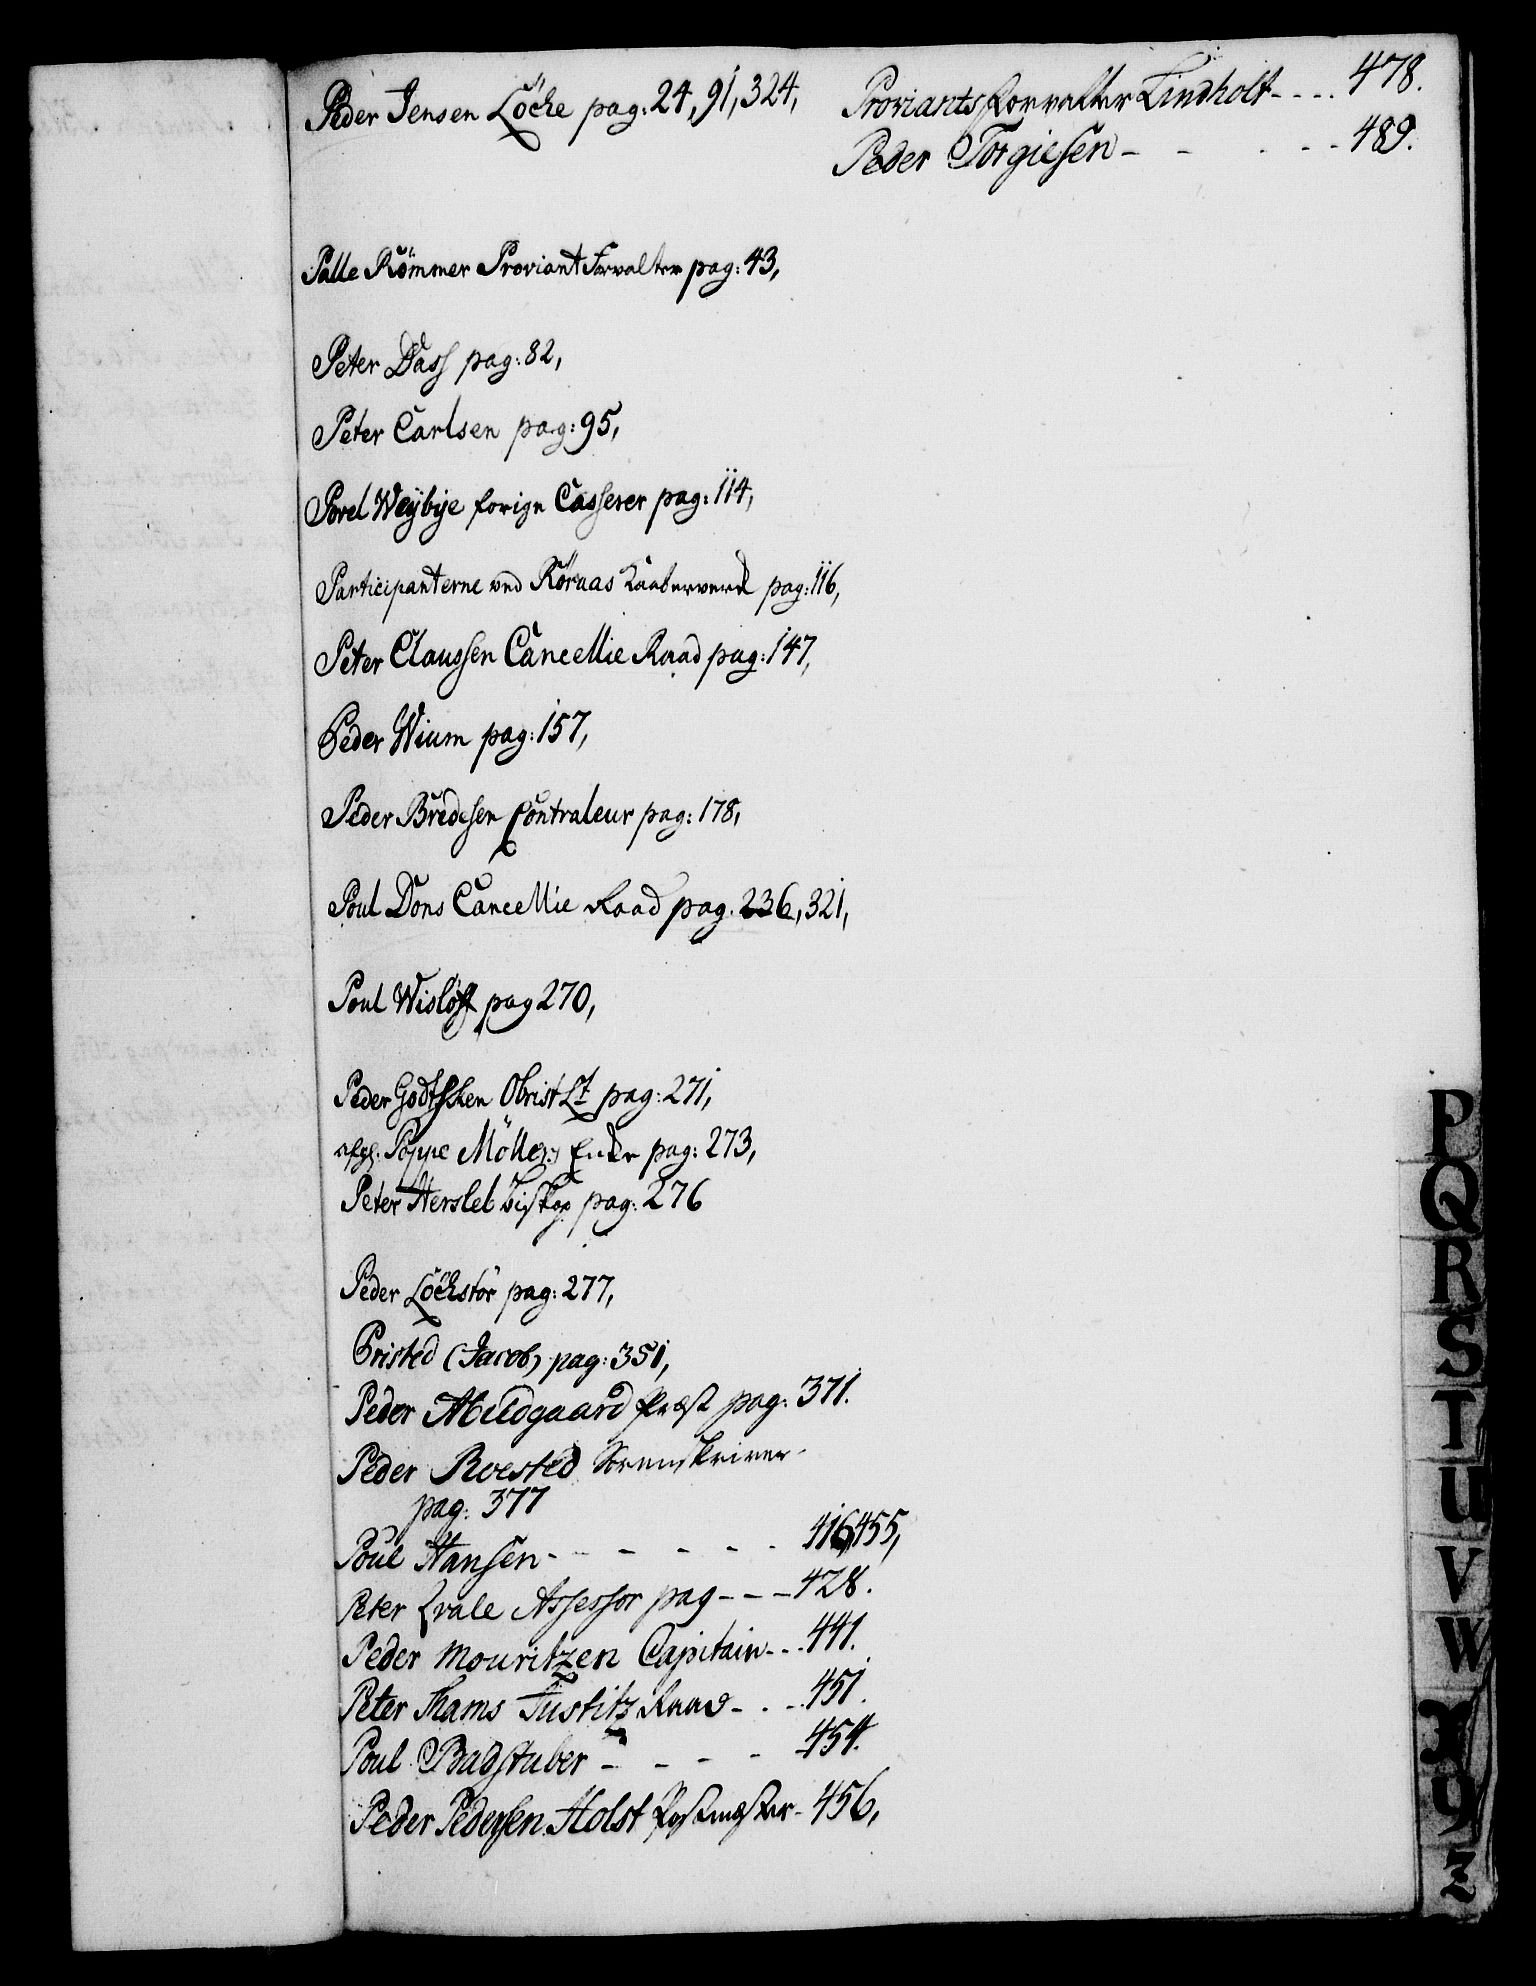 Peder Jensen Löcke pag: 24, 91, 324,
Palle Römmer Proviant Forvalter pag: 43,
Peter Dass pag: 82,
Peter Carlsen pag: 95,
Povel Weybye forige Casserer pag: 114,
Participanterne ved Röraas Kaaberverk pag: 116,
Peter Claussen Cancellie Raad pag: 147,
Peder Wium pag: 157,
Peder Bredesen Contraleur pag: 178,
Poul Dons Cancellie Raad pag. 236, 321,
Poul Wislöff pag 270,
Peder Godtsken Obrist Lt pag: 271,
afg: Poppe Möllers Encke pag: 273,
Peter Hersleb Biskop pag: 276
Peder Löckstör pag: 277,
Pristed (Jacob) pag: 351,
Peder Abildgaard Præst pag: 371.
Peder Roested Sorenskriver
pag: 377
Poul Hansen - - - - - 416, 455,
Peter Qvale Assessor pag - - - 428.
Peder Mouritzen Capitain - - 441.
Peter Thams Justitz Raad - - - 451.
Poul Badstuber - - - - 454.
Peder Pedersen Holst Postmester - 456,
Proviantsforvalter Lindholt - - - - 478.
Peder Torgiesen - - - - - 489.
P
Q
R
S
T
U
V
W
X
Y
Z